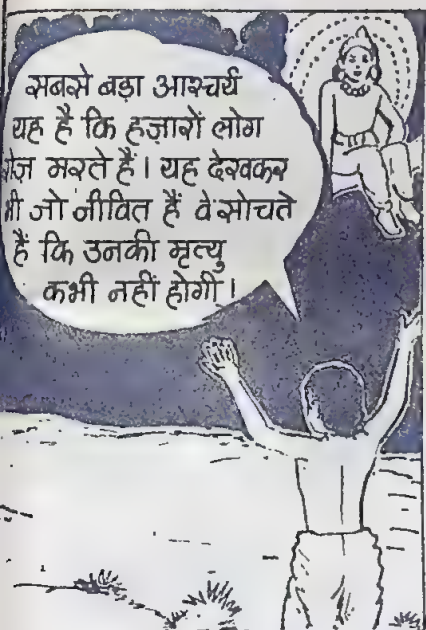 सबसे बड़ा आश्चर्य
यह है कि हज़ारों लोग
रोज़ मरते हैं। यह देखकर
भी जो जीवित हैं वे सोचते
हैं कि उनकी मृत्यु
कभी नहीं होगी।